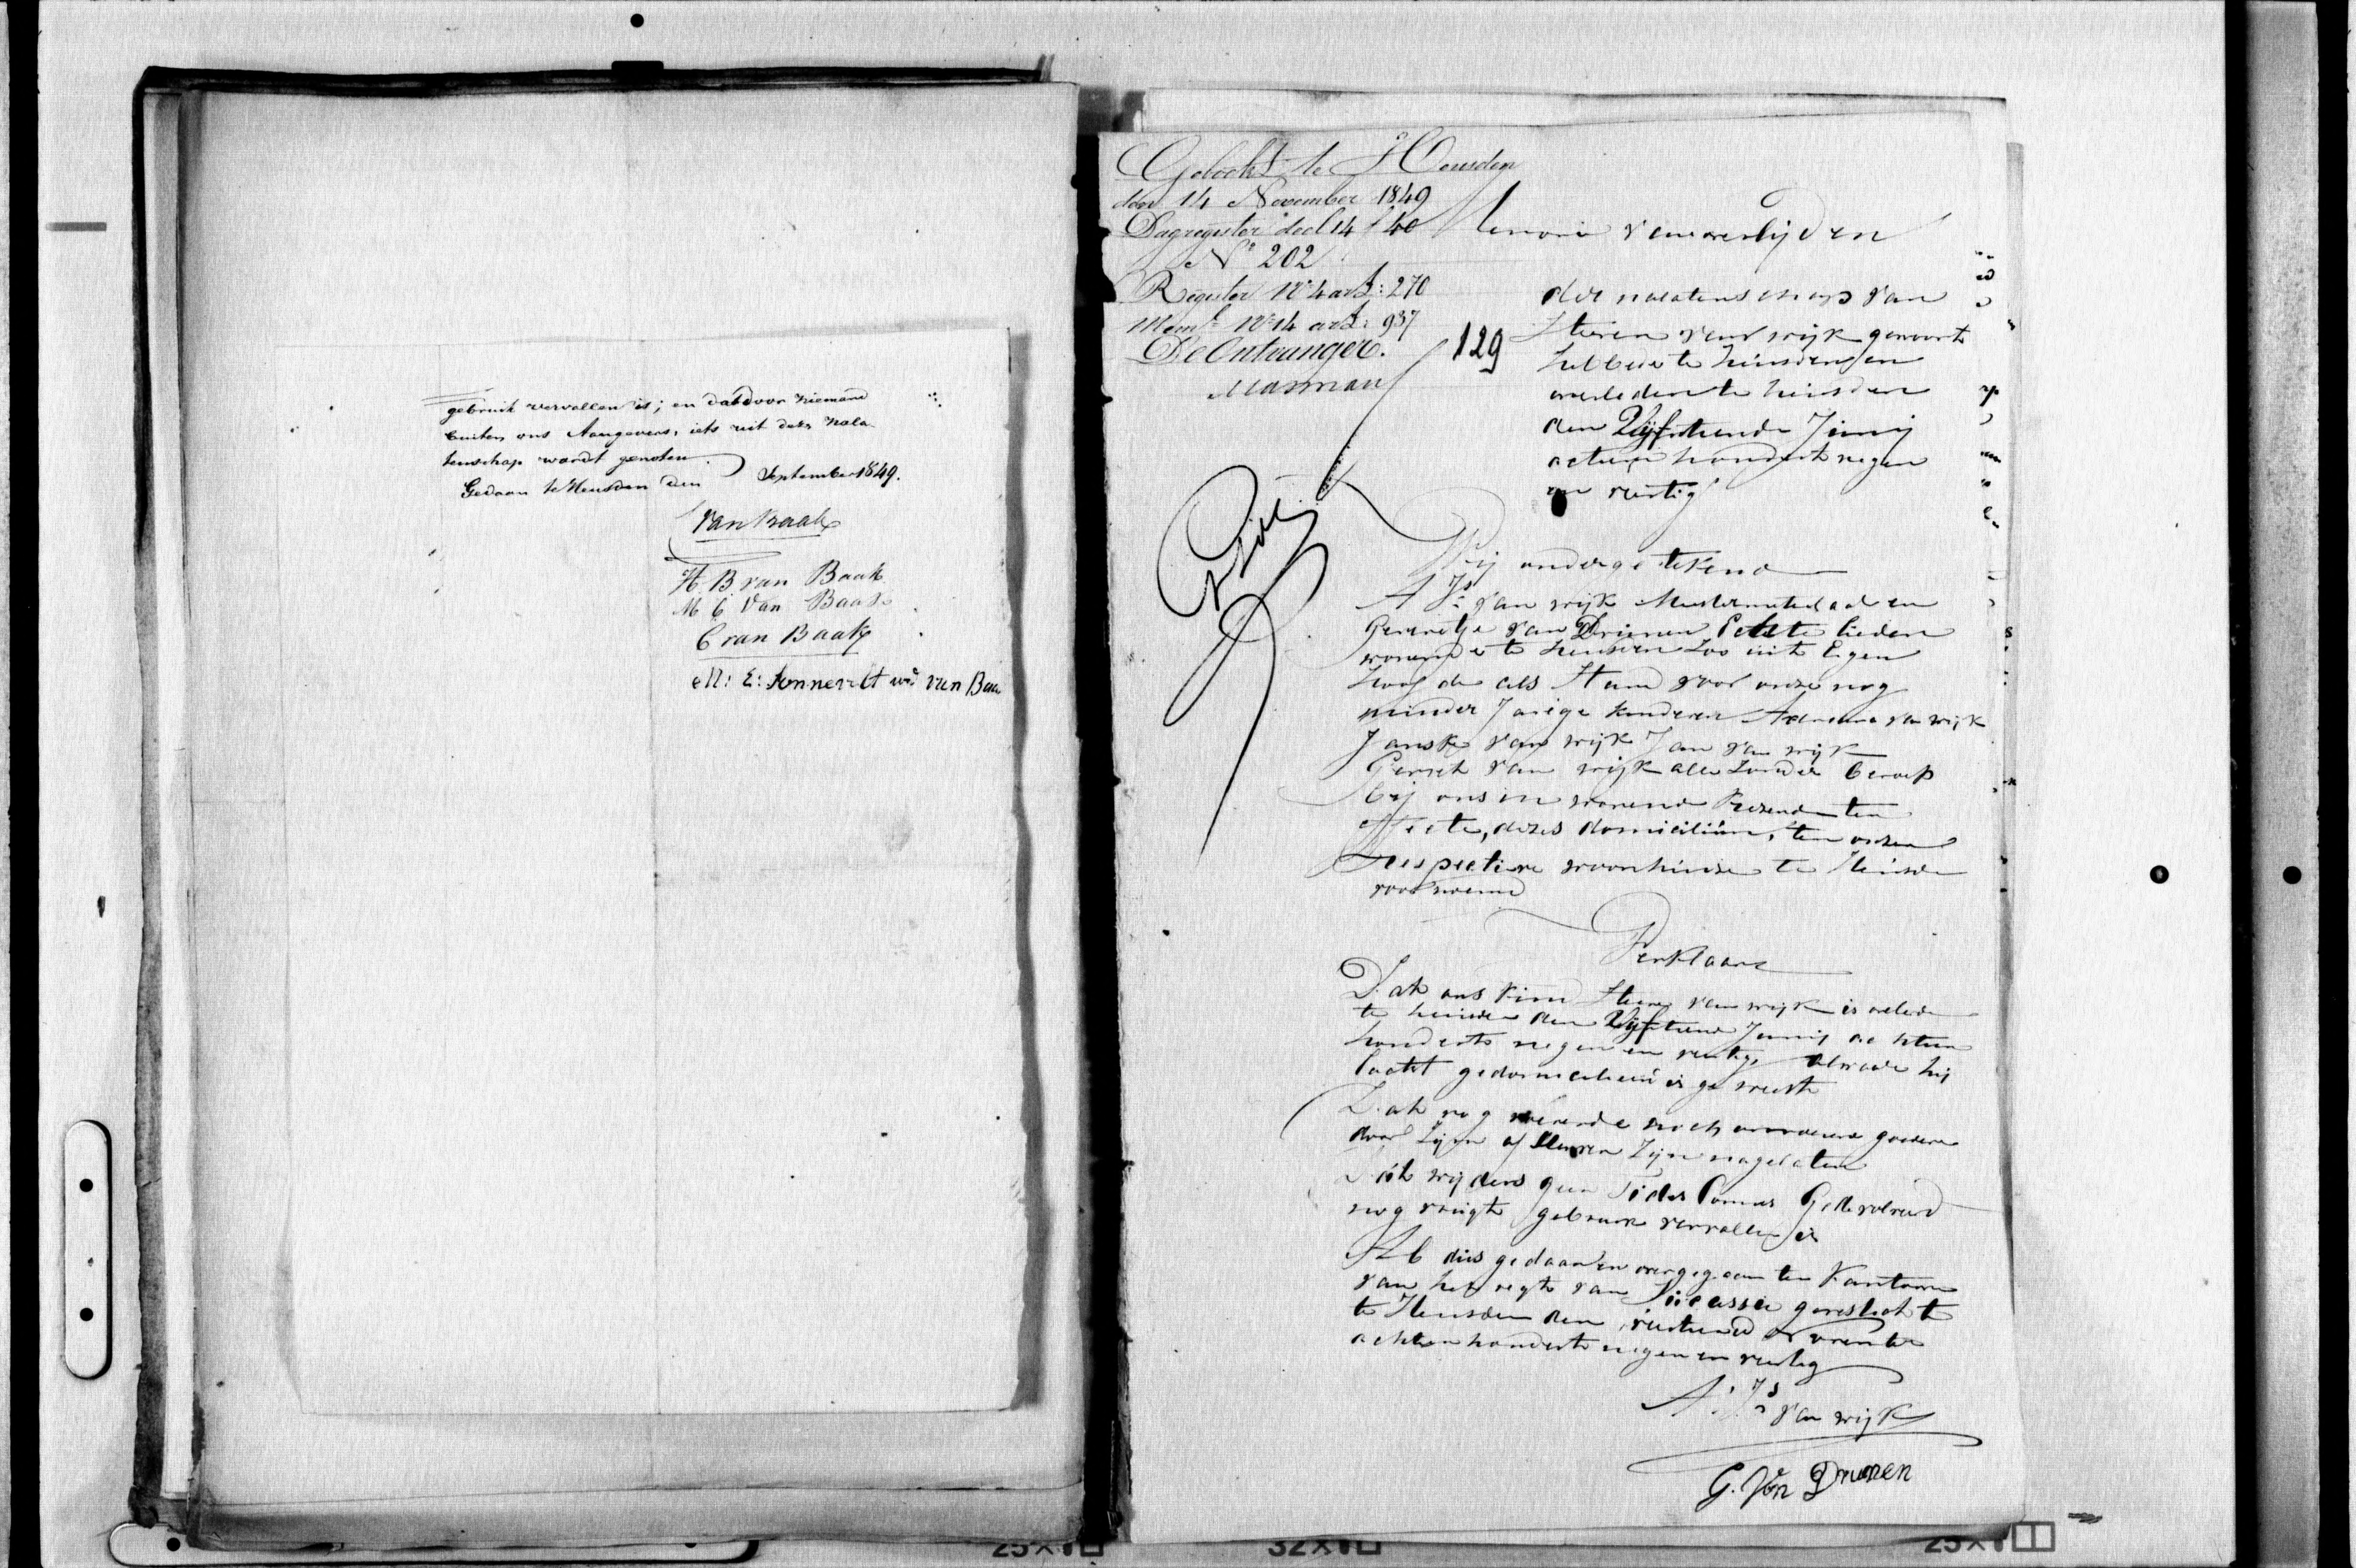 gebruik vervallen is; en dat door niemand
buiten ons Aangevers, iets uit deze nala
tenschap wordt genoten.
Gedaan te Heusden den September 1849.
Van Baak
H. B. van Baak
M C van Baak
C van Baak
M: E: Sonnevelt wed van Baa
Geboekt te Heusden
den 14 November 1849
Dagregister deel 14 f 40
No 202
Register No 4 art: 270
Meml No 14 art: 937
De Ontvanger.
Masman
129
Memorie van overlijden
der nalatenschap van
Steven van wijk gewoont
hebbende te heusden en
overleden te heusden
den Vijftiende Junij
achtien hondert negen
en veertig
Wij ondergetekend
A Js van wijk en
van Drunen Echte lieden
wonende te heusden Zoo uit Eigen
hoofde als voor onze nog
minder Jarige kinderen Adriana van wijk
Janske van wijk Jan van wijk
Gerrit van wijk alle Zonder beroep
bij ons in wonend ten
Effecte, dezes domicilium, ten onzen
Respective woonhuise te Heusden
voornoemd
Verklaare
Dat ons kind Steven van wijk is overleden
te heusden den Vijftiend Junij achtien
honderts negen en veertig, alwaar hij
laatst gedomicilieerd is geweest
Dat nog roerende noch onroerende goederen
door Zijn af sterven Zijn nagelaten
Dat wijders geen Fides Commis Gedevolveerd
nog vrugt gebruik vervallen is
Al dus gedaan en overgegeven ten Kantoore
van het regt van Successie gevestigt te
te Heusden den veertiend November
achtien honderts negen en veertig
A: Js van wijk
G. Van Drunen